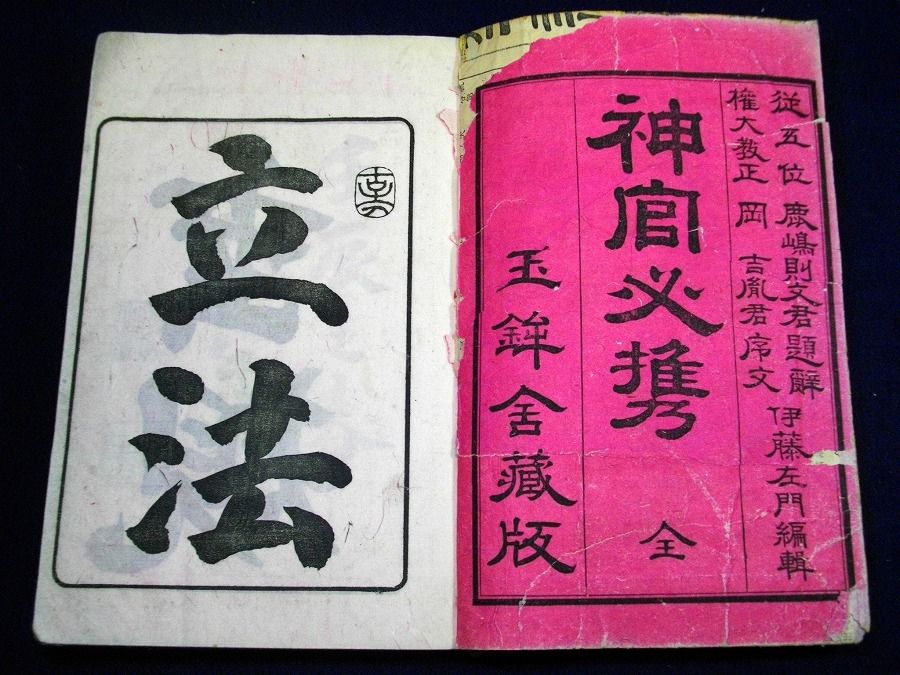 従五位 鹿嶋則文君題辭
権大教正 岡 吉胤君序文
伊藤左門編輯
神官必携 全
玉鉾舎藏版
立法